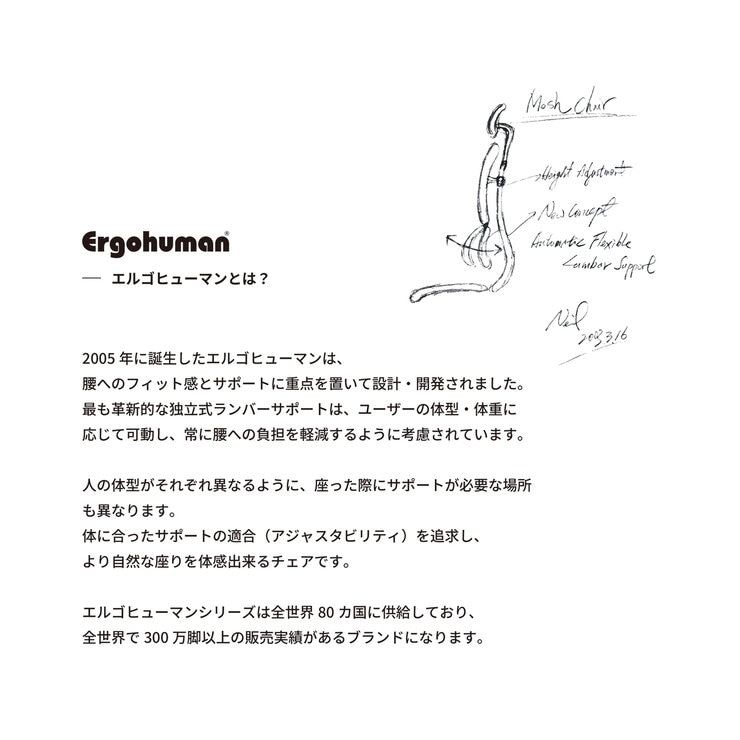 Mesh Chair
Height Adjustment
New Concept
Automatic Flexible
Lumbar Support
Neil
Ergohuman®
― エルゴヒューマンとは？
2005 年に誕生したエルゴヒューマンは、
腰へのフィット感とサポートに重点を置いて設計・開発されました。
最も革新的な独立式ランバーサポートは、ユーザーの体型・体重に
応じて可動し、常に腰への負担を軽減するように考慮されています。
人の体型がそれぞれ異なるように、座った際にサポートが必要な場所
も異なります。
体に合ったサポートの適合（アジャスタビリティ）を追求し、
より自然な座りを体感出来るチェアです。
エルゴヒューマンシリーズは全世界 80 カ国に供給しており、
全世界で 300 万脚以上の販売実績があるブランドになります。